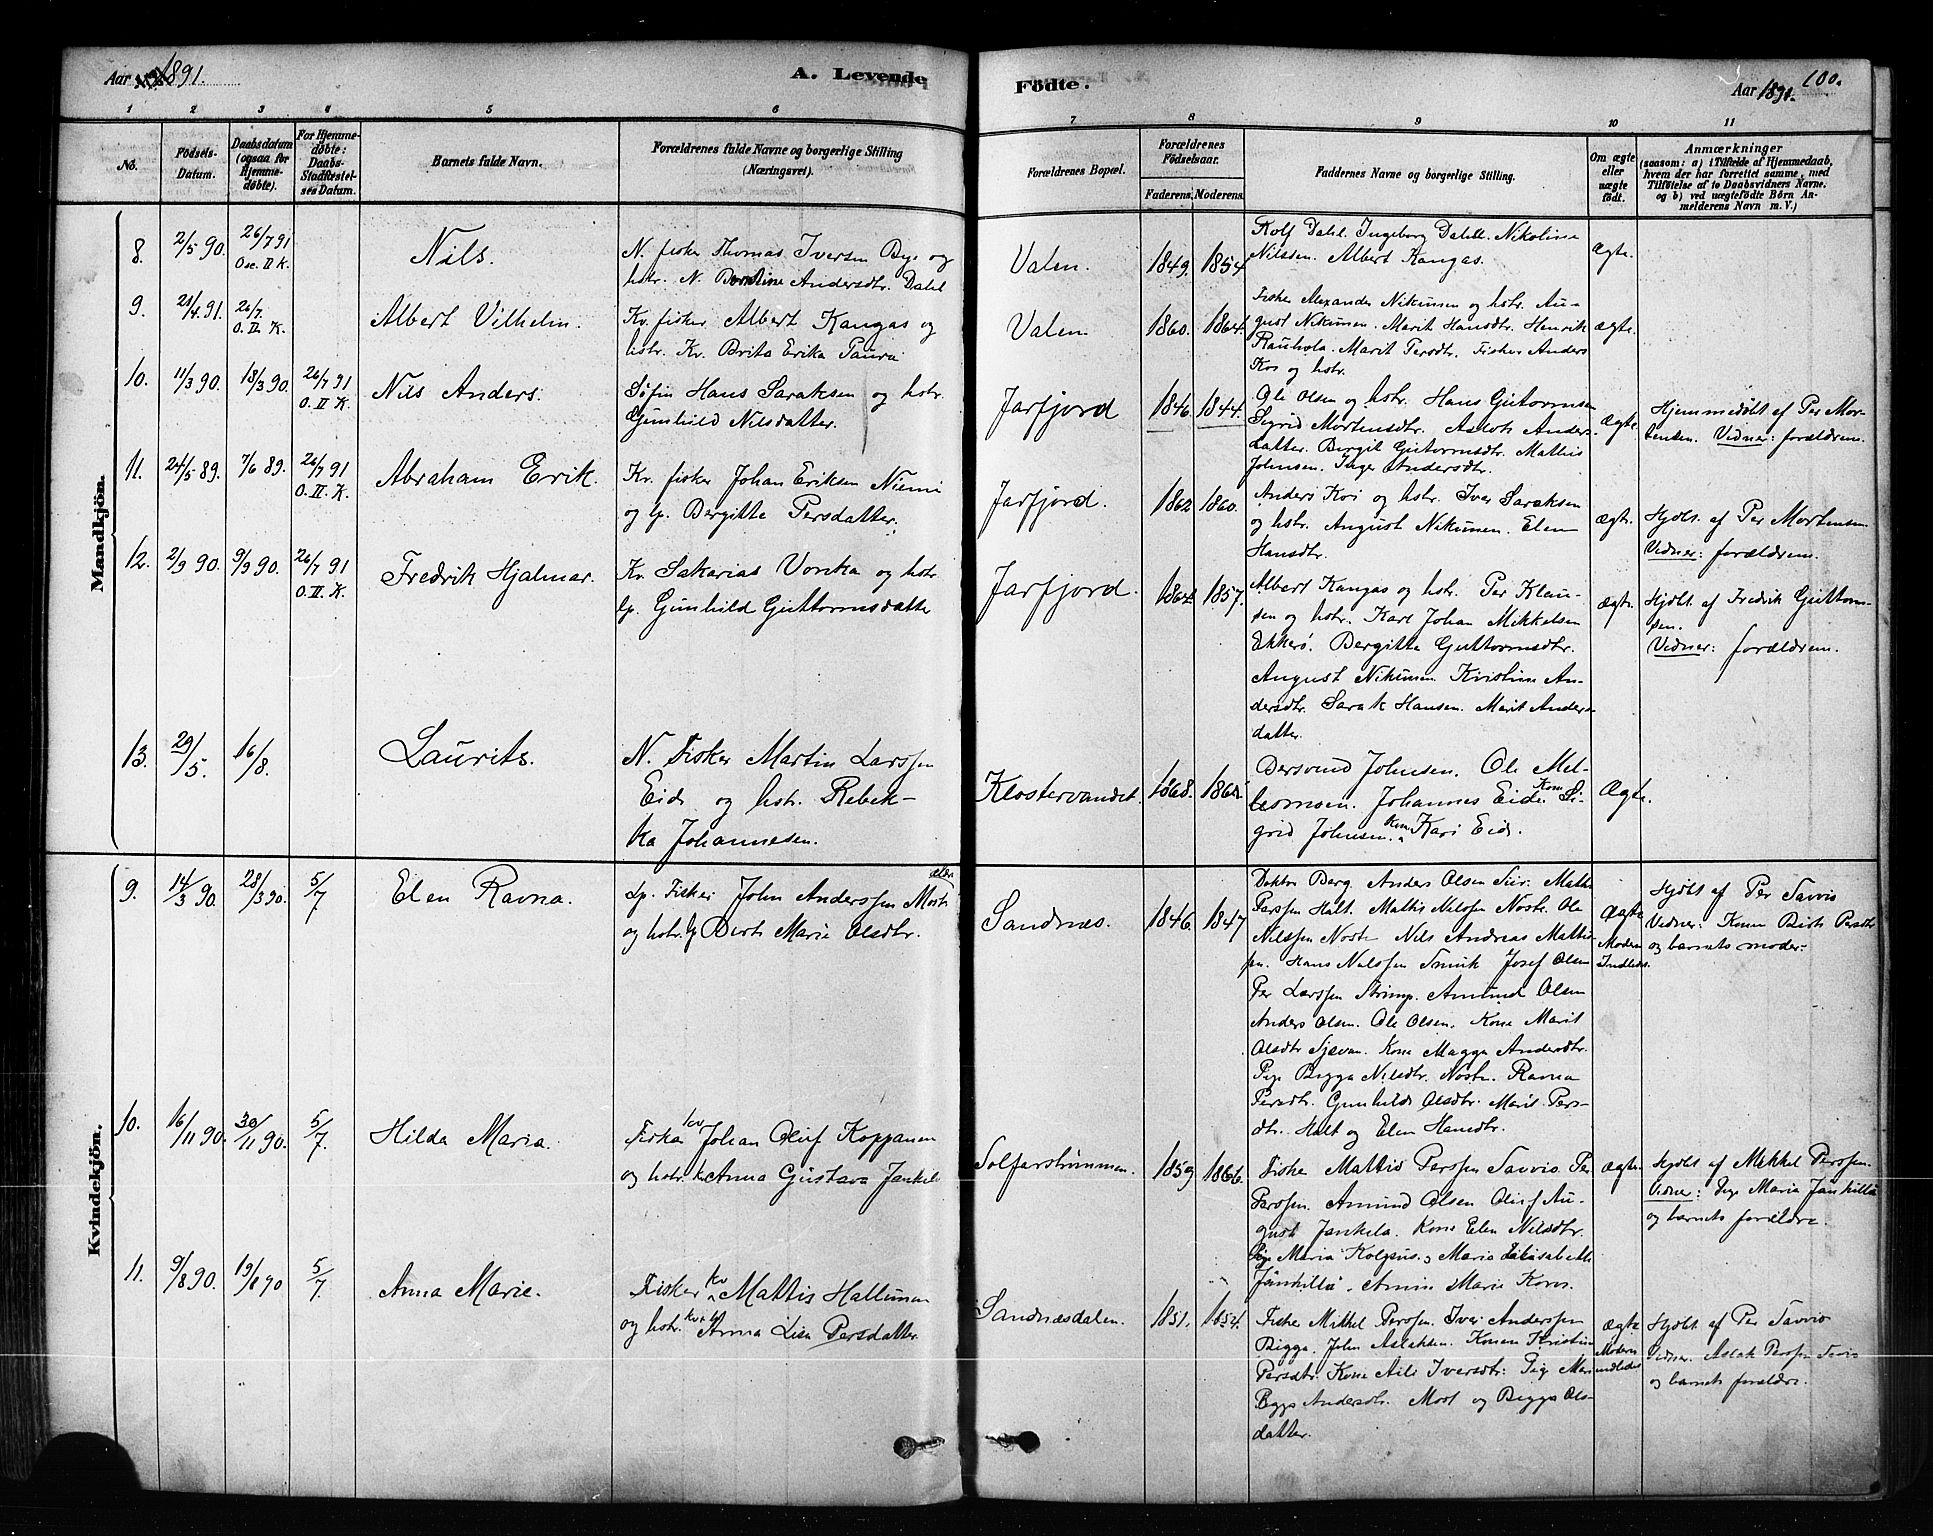 Aar 1891.
A. Levende
Födte.
Aar 1891.
100.
1 2 3 4 5 6 7 8 9 10 11
No.
Födsels-
Datum.
Daabsdatum
(ogsaa for
Hjemme-
døbte).
For Hjemme-
døbte:
Daabs-
Stadfæstel-
ses Datum.
Barnets fulde Navn.
Forældrenes fulde Navne og borgerlige Stilling
(Næringsvei).
Forældrenes Bopæl.
Forældrenes
Födselsaar.
Faderens. Moderens.
Faddernes Navne og borgerlige Stilling.
Om ægte
eller
uægte
födt.
Anmærkninger
(saasom: a) i Tilfælde af Hjemmedaab,
hvem der har forrettet samme, med
Tilføielse af to Daabsvidners Navne.
og b) ved uægtefödte Börn An-
melderens Navn m. V.)
Mandkjön.
8. 2/5 90. 26/7 91
O. II K.
Nils.
N. fisker Thomas Iversen Bye og
hstr. N. Andersdtr. Dahl
Valen. 1849. 1854.
Rolf Dahl. Ingeborg Dahl. Nikoline
Nilssen. Albert Kangas.
Ægte.
9. 21/4 91. 26/7.
O. II. K.
Albert Vilhelm.
Kv. fisker Albert Kangas og
hstr. Kv. Brita Erika
Valen. 1860. 1864.
Fisker Alexander Nikunen og hstr. Au-
gust Nikunen. Marit Hansdtr. Henrik
Rauhola. Marit Persdtr. Fisker Anders
Koi og hstr.
ægte.
10. 11/3 90. 18/3 90. 26/7 91
O. II K.
Nils Anders.
Søfin Hans Saraksen og hstr.
Gunhild Nilsdatter.
Jarfjord 1846. 1844.
Ole Olsen og hstr. Hans Guttormsen
Sigrid Mortensdtr. Anders-
datter. Bergit Guttormsdtr. Mathis
Johnsen. Inger Andersdtr.
ægte.
Hjemmedøbt af Per Mor-
tensen. Vidner: forældrene.
11. 24/5 89. 7/6 89. 26/7 91
O. II. K.
Abraham Erik.
Kv. fisker Johan Eriksen Niemi
og lp. Bergitte Persdatter.
Jarfjord. 1862 1860.
Anders Koi og hstr. Iver Saraksen
og hstr. August Nikunen. Elen
Hansdtr.
ægte.
Hjdbt. af Per Mortensen
Vidner: forældrene.
12. 2/9 90. 9/9 90. 26/7 91
O. II. K.
Fredrik Hjalmar.
Kv. Sakarias Vonka og hstr.
lp. Gunhild Guttormsdatter
Jarfjord. 1857.
Albert Kangas og hstr. Per Klau-
sen og hstr. Karl Johan Mikkelsen
Ekkerø. Bergitte Guttormsdtr.
August Nikunen Kristine An-
dersdtr. Sarak Hansen. Marit Anders-
datter.
ægte.
Hjdbt. af Fredrik Guttorm-
sen.
Vidner: forældrene.
13. 29/5. 16/8.
Laurits.
N. Fisker Martin Larssen
Eide og hstr. Rebek-
ka Johannesen.
Klostervandet. 1868.
Johnsen. Ole Mel-
Johannes Eide. Kone Si-
grid Johnsen. Kone Kari Eide.
Ægte.
Kvindekjön.
9. 14/3 90. 28/3 90. 5/7
Elen Ravna.
Lp. Fisker John Anderssen
og hstr. Birte Marie Olsdtr.
Sandnæs. 1846. 1847
Doktor Berg. Anders Olsen
Perssen Halt. Mattis Nilssen Noste. Ole
Nilssen Noste Nils Andreas Mattis-
sen. Hans Nilssen Josef Olsen
Per Larssen Strimp. Amund Olsen
Anders Olsen. Ole Olsen. Kone Marit
Olsdtr Sjøvan. Kone Magga Andersdtr.
Pige Bigga Nilsdtr. Noste. Ravna
Persdtr. Gunhild Olsdtr. Marit Pers-
dtr. Halt og Elen Hansdtr.
Ægte
Moderen
Hjdbt af Per Savvio
Vidner: Konen Birte Persdtr
og barnets moder.
10. 16/11 90. 30/11 90. 5/7.
Hilda Maria.
Fisker kv Johan Oluf Koppanen
og hstr. kv Anna Gustava Jankila
Solfarstrømmen. 1859 1866.
Fisker Mattis Perssen Savvio. Per
Larssen. Amund Olsen Oluf Au-
gust Jankila. Kone Elen Nilsdtr.
Pige Maria Maria
Marie
ægte.
Hjdbt af Mikkel Perssen.
Vidner: Pige Maria
og barnets forældre.
11. 9/8 90. 19/8 90 5/7
Anna Marie.
Fisker kv Mattis Hallunen
og hstr. Anna Lisa Persdatter.
Sandnæsdalen. 1851. 1854.
Fisker Mikkel Perssen. Iver Anderssen
Bigga. John Aslaksen. Konen Kristin
Persdtr. Kone Aile Iversdtr. Pige
Bigga Andersdtr. og Bigga Ols-
datter.
ægte
Moderen
Hjdbt. af Per Savvio
Vidner. Aslak Perssen Savvio
og barnets forældre.